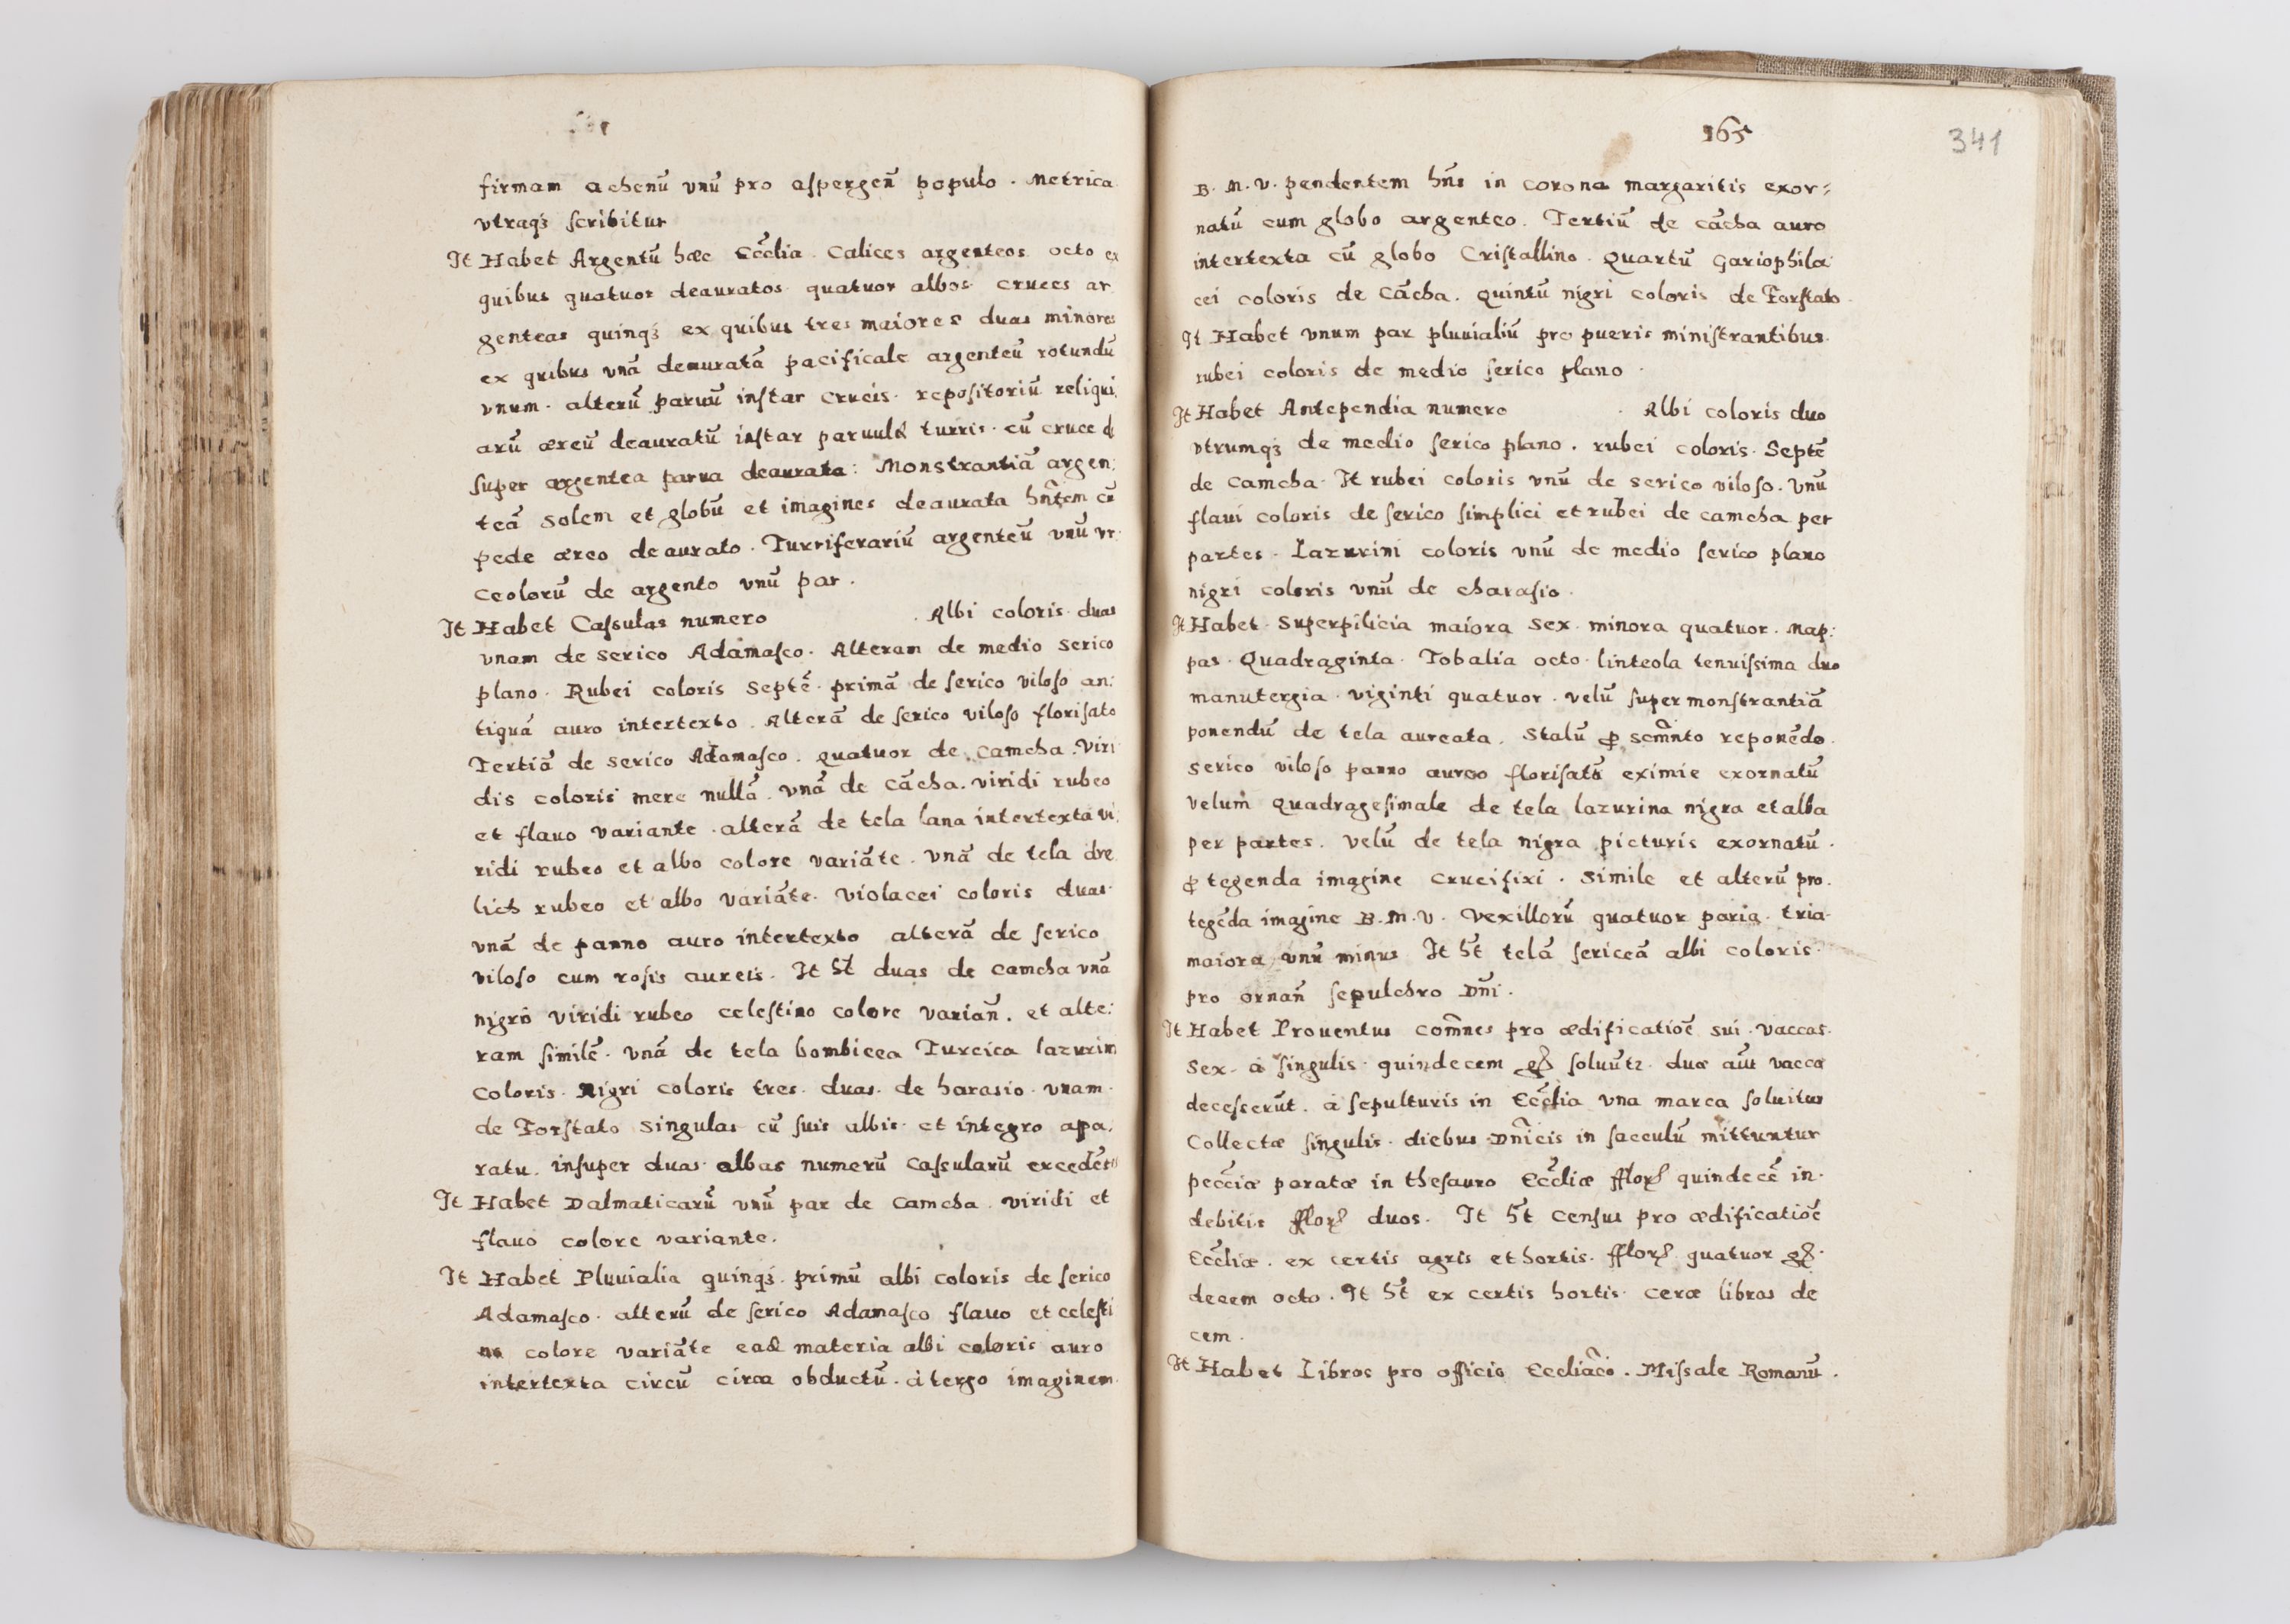 firmam achenū vnū pro aſpergen̄ populo . Metrica
vtraqꝫ ſcribitur
It Habet Argentū hæc Eccl̄ia . Calices argenteos octo ex
quibus quatuor deauratos quatuor albos cruces ar
genteas quinqꝫ ex quibus tres maiores duas minores
ex quibus vnā deauratā pacificale argenteū rotundū
vnum . alterū paruū inſtar crucis . repoſitoriū reliqui
arū æreū deauratū inſtar paruulæ turris . cū cruce d
ſuper argentea parua deaurata : Monstrantiā argen:
teā Solem et globū et imagines deaurata hn̄tem cū
pede æreo deaurato . Turriferariū argenteū vnū vr
ceolorū de argento vnū par .
It Habet Caſsulas numero . Albi coloris duas
vnam de Serico Adamaſco . Alteram de medio Serico
plano . Rubei coloris Septē . primā de ſerico viloſo an:
tiquā auro intertexto . Alterā de ſerico viloſo floriſato
Tertiā de Serico Adamaſco . quatuor de Camcha . Viri
dis coloris mere nullā . vnā de Cācha . viridi rubeo
et flauo variante . alterā de tela lana intertexta vi:
ridi rubeo et albo colore variāte . vnā de tela dre
lich rubeo et albo variāte . violacei coloris duas
vnā de panno auro intertexto alterā de ſerico
viloſo cum roſis aureis . It ht̄ duas de Camcha vnā
nigro viridi rubeo celeſtino colore varian̄ . et alte:
ram ſimilē . vnā de tela bombicea Turcica lazurini
Coloris . Nigri coloris tres . duas . de harasio . vnam .
de Forſtato Singulas cū ſuis albis . et integro apa.
ratu . inſuper duas albas numerū Caſsularū excedētes
It Habet Dalmaticarū vnū par de Camcha . viridi et
flauo colore variante .
It Habet Pluuialia quinqꝫ . primū albi coloris de ſerico
Adamaſco . alterū de ſerico Adamaſco flauo et celeſti
no colore variāte eadē materia albi coloris auro
intertexta circū circa obductū . à tergo imaginem
165
341
B . M . V . pendentem hn̄s in corona margaritis exor⸗
natū cum globo argenteo . Tertiū de cācha auro
intertexta cū globo Criſtallino . Quartū Gariophila
cei coloris de Cācha . Quintū nigri coloris de Forſtato .
It Habet vnum par pluuialiū pro pueris miniſtrantibus .
rubei coloris de medio ſerico plano .
It Habet Antependia numero . Albi coloris duo
vtrumqꝫ de medio ſerico plano . rubei coloris . Septē
de Camcha . It rubei coloris vnū de serico viloſo . Vnū
flaui coloris de ſerico ſimplici et rubei de camcha per
partes . Lazurini coloris vnū de medio ſerico plano
nigri coloris vnū de charaſio .
It Habet . Superpilicia maiora Sex . minora quatuor . Map:
pas . Quadraginta . Tobalia octo . linteola tenuiſsima duo
manutergia . viginti quatuor . velū ſuper monſtrantiā
ponendū de tela aureata . Stalū ꝓ Scm̄nto reponēdo .
Serico viloſo panno aureo floriſatū eximie exornatū
Velum Quadrageſimale de tela lazurina nigra et alba
per partes . velū de tela nigra picturis exornatū .
ꝓ tegenda imagine crucifixi . Simile et alterū pro .
tegēda imagine B . M . V . Vexillorū quatuor paria . tria
maiora vnū minus It ht̄ telā ſericeā albi coloris .
pro ornan̄ ſepulchro Dn̄i .
It Habet Prouentus com̄nes pro ædificatiōe sui . vaccas .
Sex . à ſingulis . quindecem gſ ſoluūtz . duæ aūt vaccæ
deceſserūt . à ſepulturis in Eccl̄ia vna marca ſoluitur
Collectæ ſingulis . diebus Dn̄icis in ſacculū mittuntur
pecc̄iæ paratæ in theſauro Eccl̄iæ fflor quindecē in .
debitis fflor duos . It ht̄ Cenſus pro ædificatiōe
Eccl̄iæ . ex certis agris et hortis . fflor quatuor gſ .
decem octo . It ht̄ ex certis hortis . ceræ libras de
cem .
It Habet Libros pro officio Eccliāco . Miſsale Romanū .